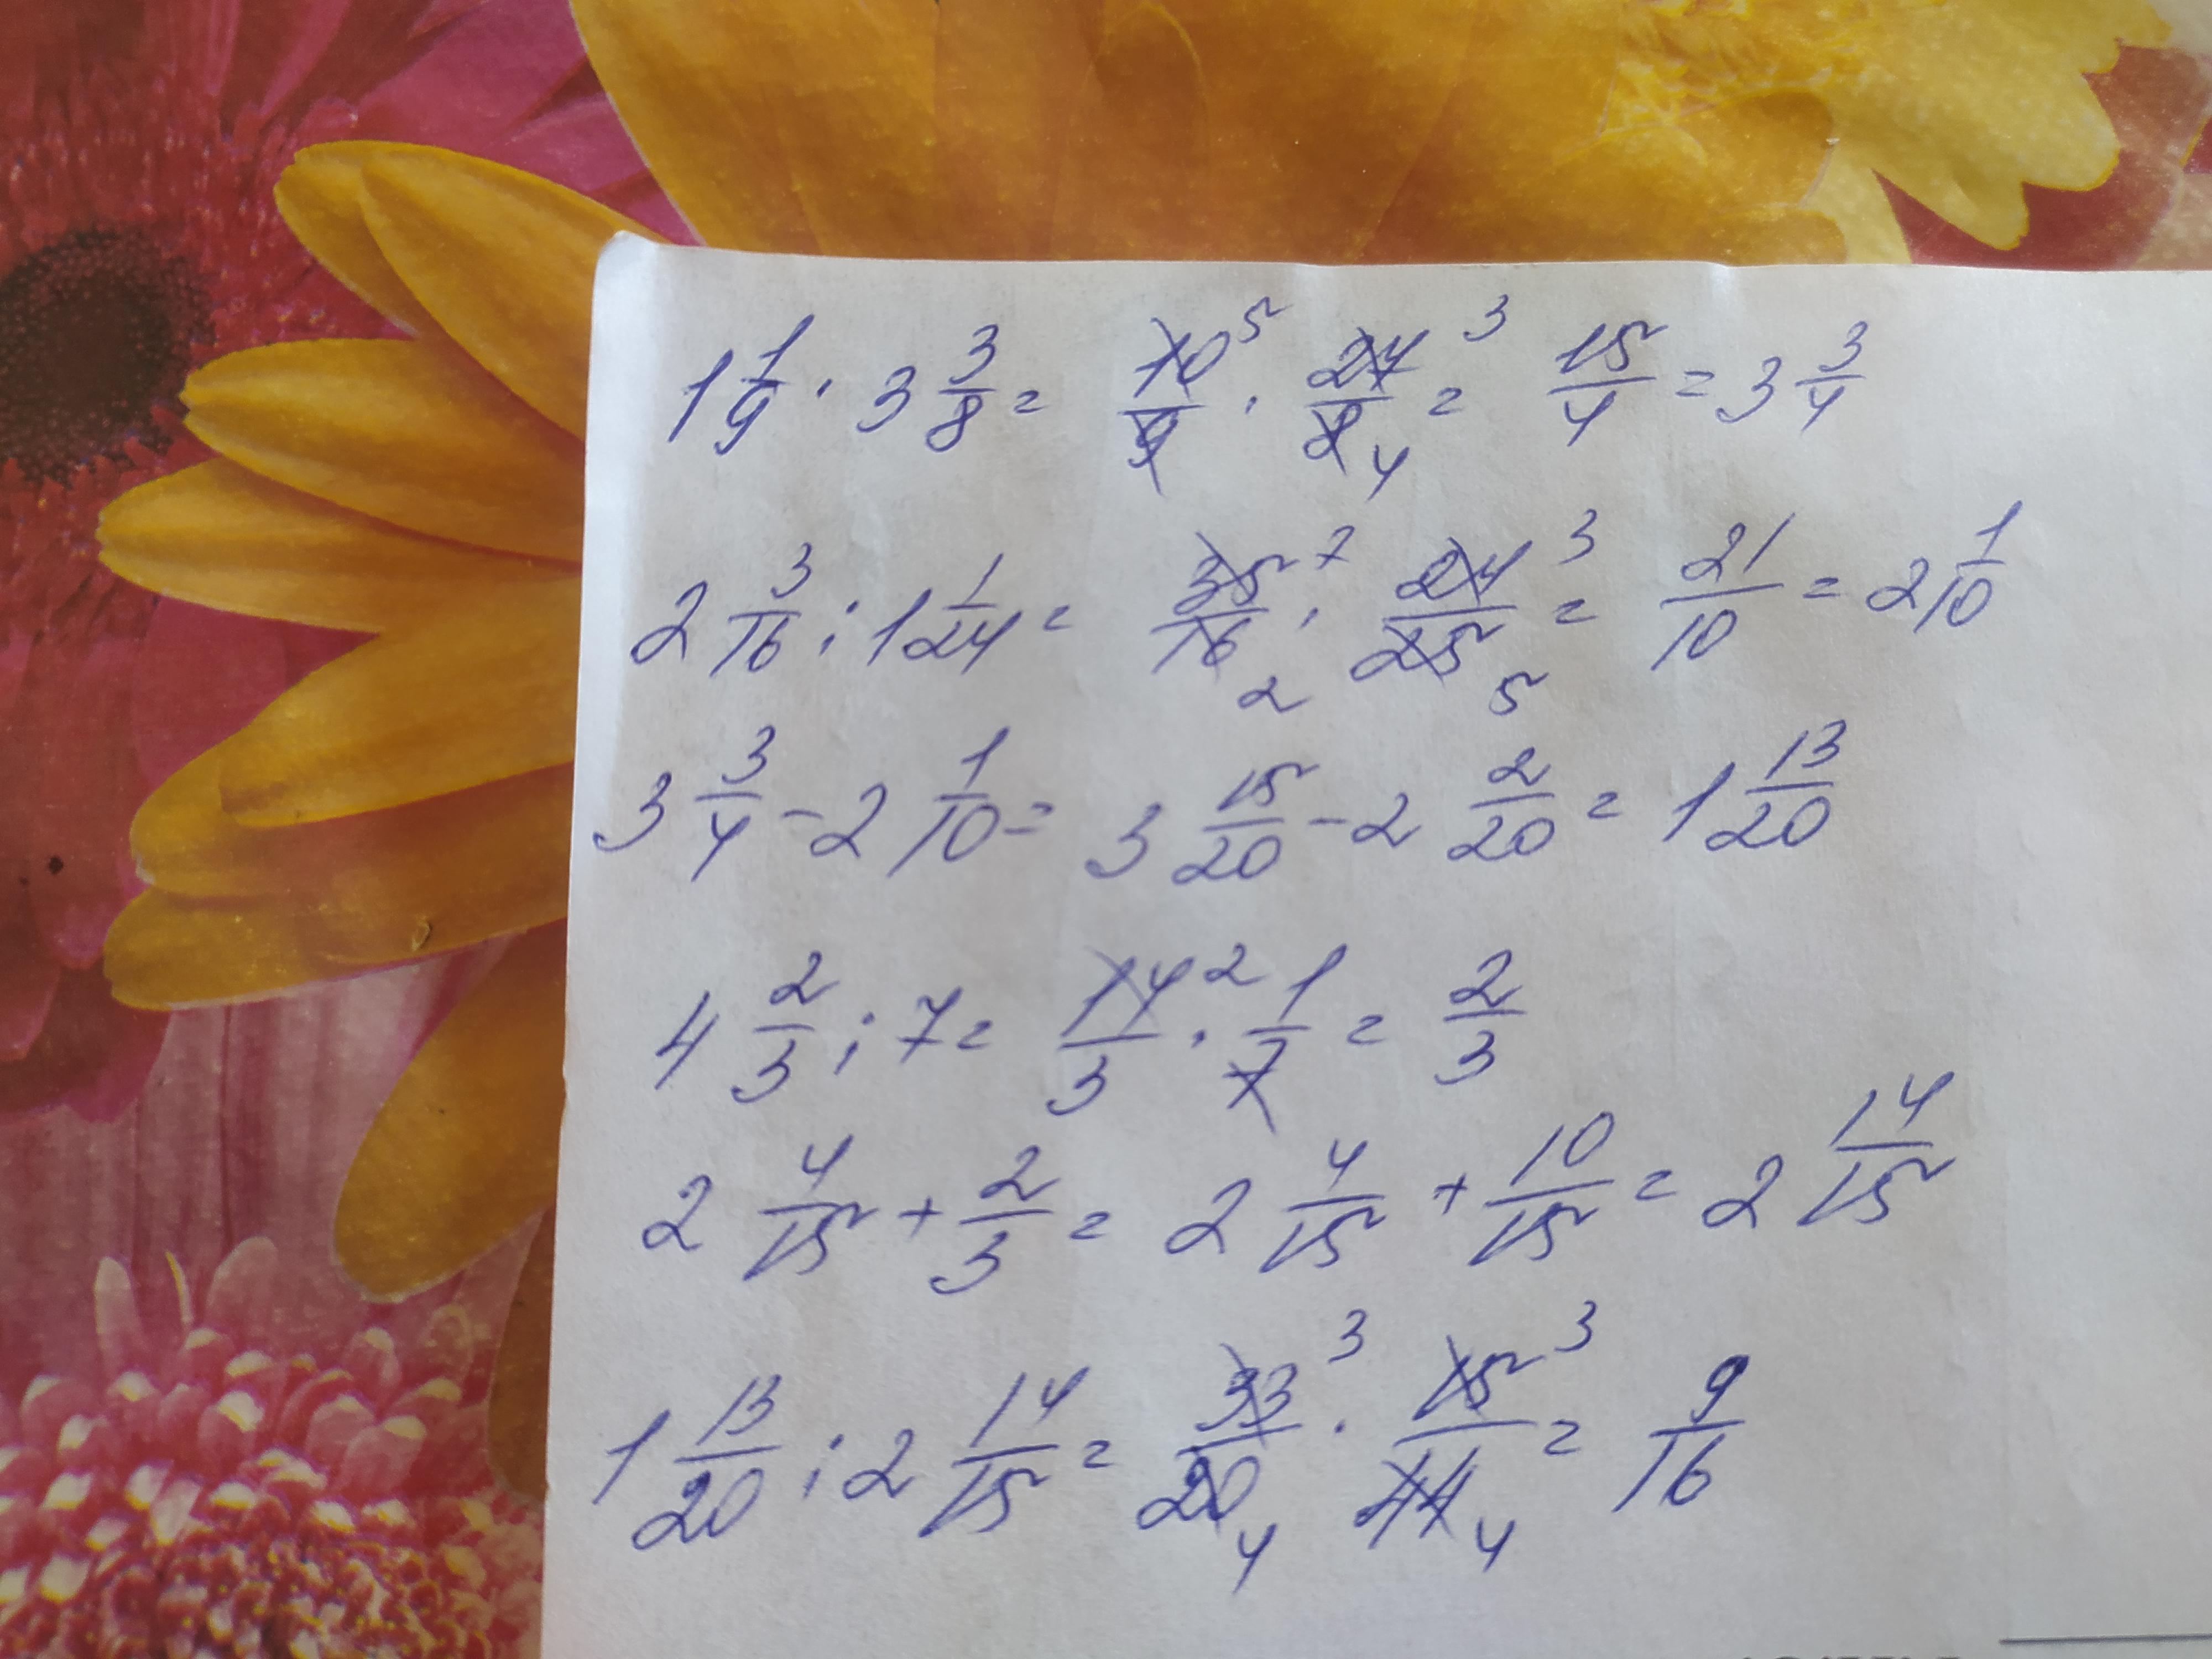 1 1/9 · 3 3/8 = 10/9 5 · 27/8 4 3 = 15/4 = 3 3/4
2 3/16 : 1 1/24 = 35/16 7 2 · 24/25 3 5 = 21/10 = 2 1/10
3 3/4 - 2 1/10 = 3 15/20 - 2 2/20 = 1 13/20
4 2/3 : 7 = 14/3 2 · 1/7 = 2/3
2 4/15 + 2/3 = 2 4/15 + 10/15 = 2 14/15
1 13/20 : 2 14/15 = 33/20 3 4 · 15/44 3 4 = 9/16